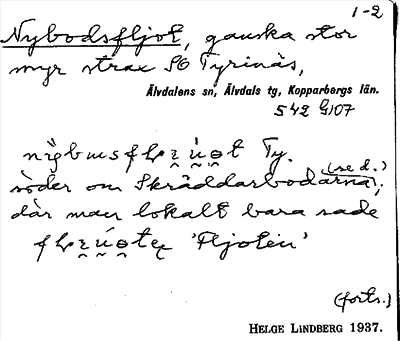 1-2
Nybodsfljot, ganska stor
myr strax SO Tyrinäs,
Älvdalens sn, Älvdals tg, Kopparbergs län.
542 G/07
Ty.
söder om Skräddarbodarna (se d.);
där man lokalt bara sade
'Fljoten'
(forts.)
HELGE LINDBERG 1937.